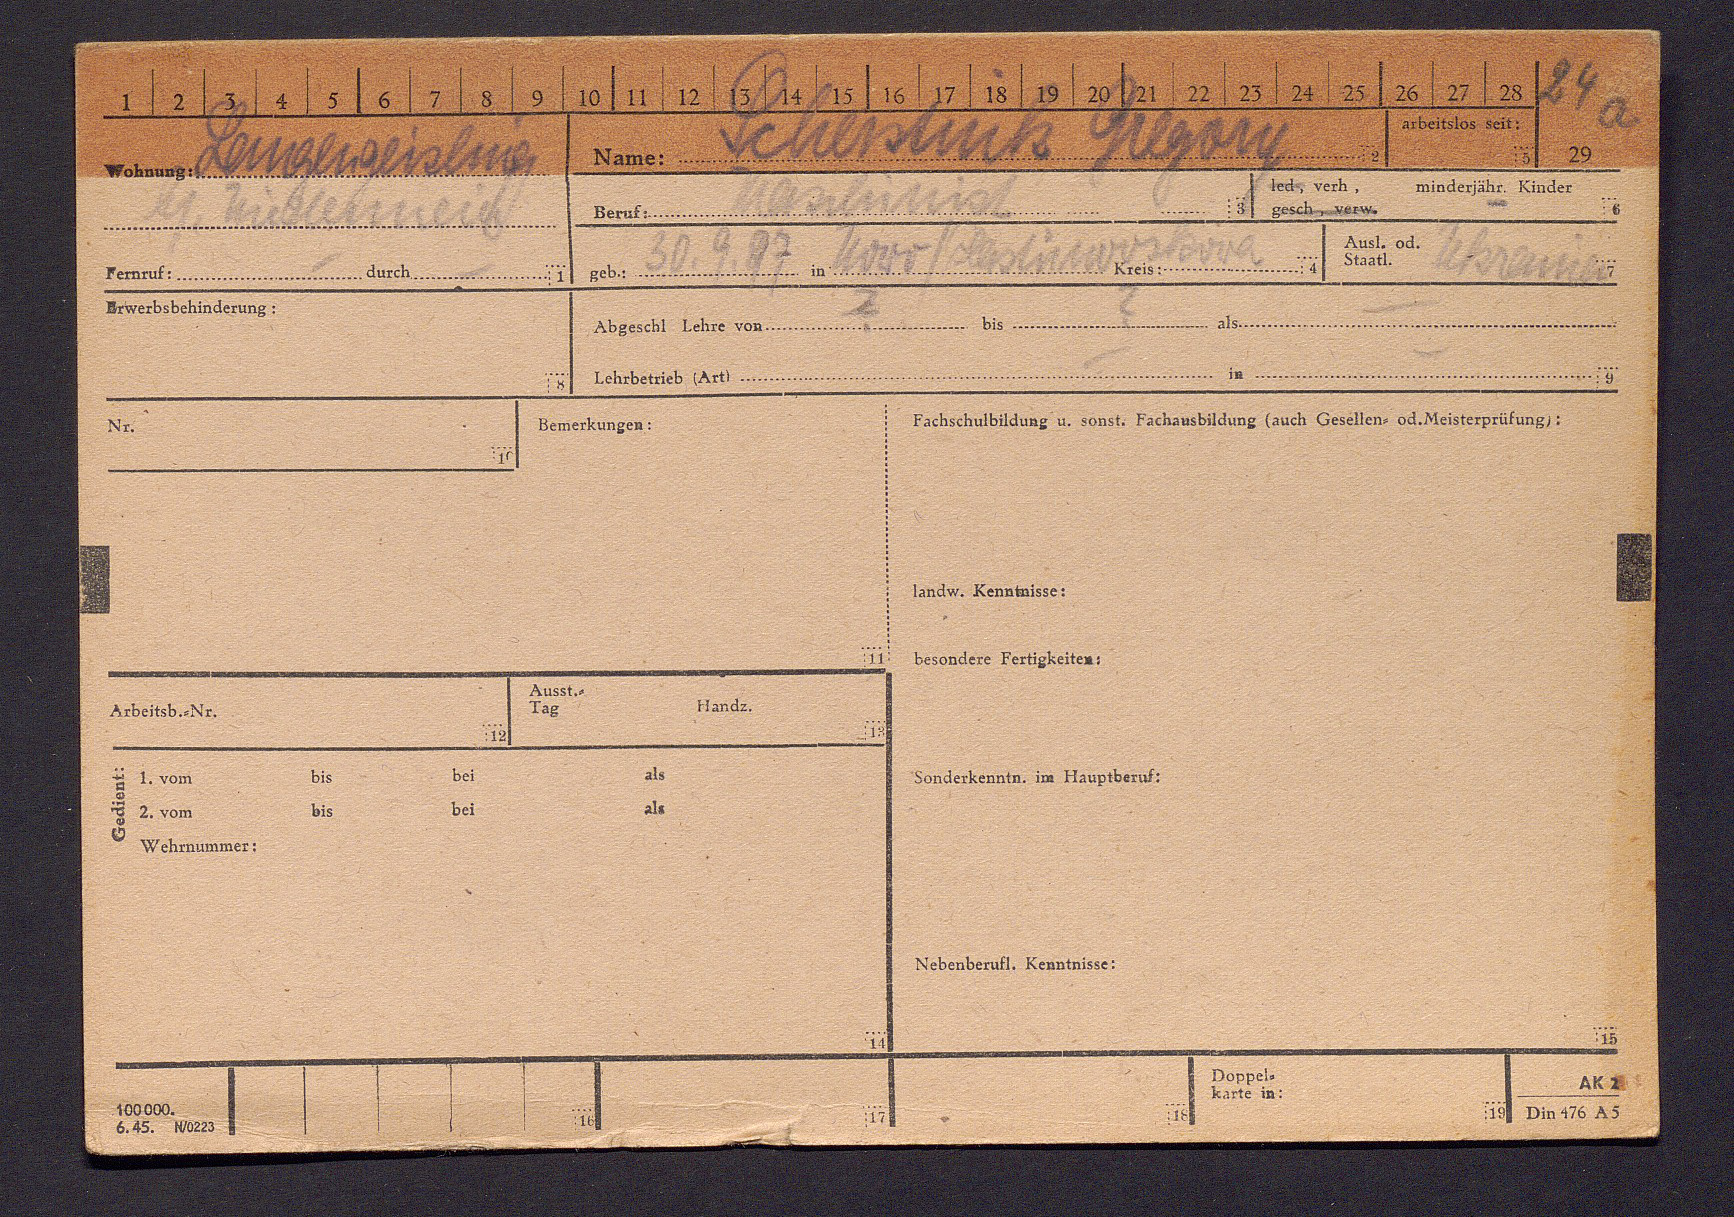 1 2 3 4 5 6 7 8 9 10 11 12 13 14 15 16 17 18 19 20 21 22 23 24 25 26 27 28 24 a
arbeitslos seit:
5 29
Wohnung: Langengeisling
Name: Gregory 2
led., verh, minderjähr. Kinder –
gesch, verw. 6
Beruf: Maschinist 3
Fernruf: – durch – 1
geb.: 30. 9. 87 in Novo/ Kreis: 4
Ausl. od.
Staatl. Ukraine 7
Erwerbsbehinderung:
8
Abgeschl Lehre von ? bis ? als –
Lehrbetrieb (Art) – in – 9
Nr.
10
Bemerkungen:
11
Fachschulbildung u. sonst. Fachausbildung (auch Gesellen- od. Meisterprüfung):
landw. Kenntnisse:
besondere Fertigkeiten:
Arbeitsb.-Nr.
12
Ausst.-
Tag Handz.
13
Gedient:
1. vom bis bei als
2. vom bis bei als
Wehrnummer:
14
Sonderkenntn. im Hauptberuf:
Nebenberufl. Kenntnisse:
15
100000.
6.45. N/0223
16
17
18
Doppel-
karte in:
19
AK 2
Din 476 A5